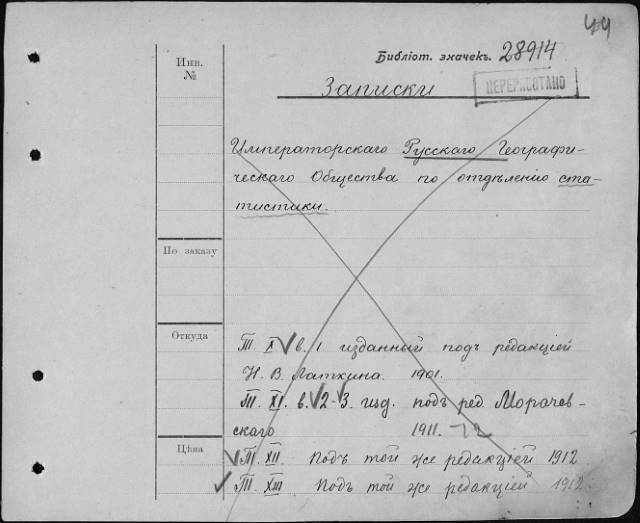 44
Инв.
№
Библіот. значекъ. 28914
ПЕРЕРАБОТАНО
Записки
Императорскаго Русскаго Географи-
ческаго Общества по отдѣленію ста-
тистики.
По заказу
Откуда
Т. X в. 1 изданный подъ редакціей
Н. В. Латкина. 1901.
Т. XI. в. 2-3. изд. подъ ред. Морачев-
скаго 1911.-12
Цѣна
Т. XII. Подъ той же редакціей 1912
Т. XIII Подъ той же редакціей 1912.